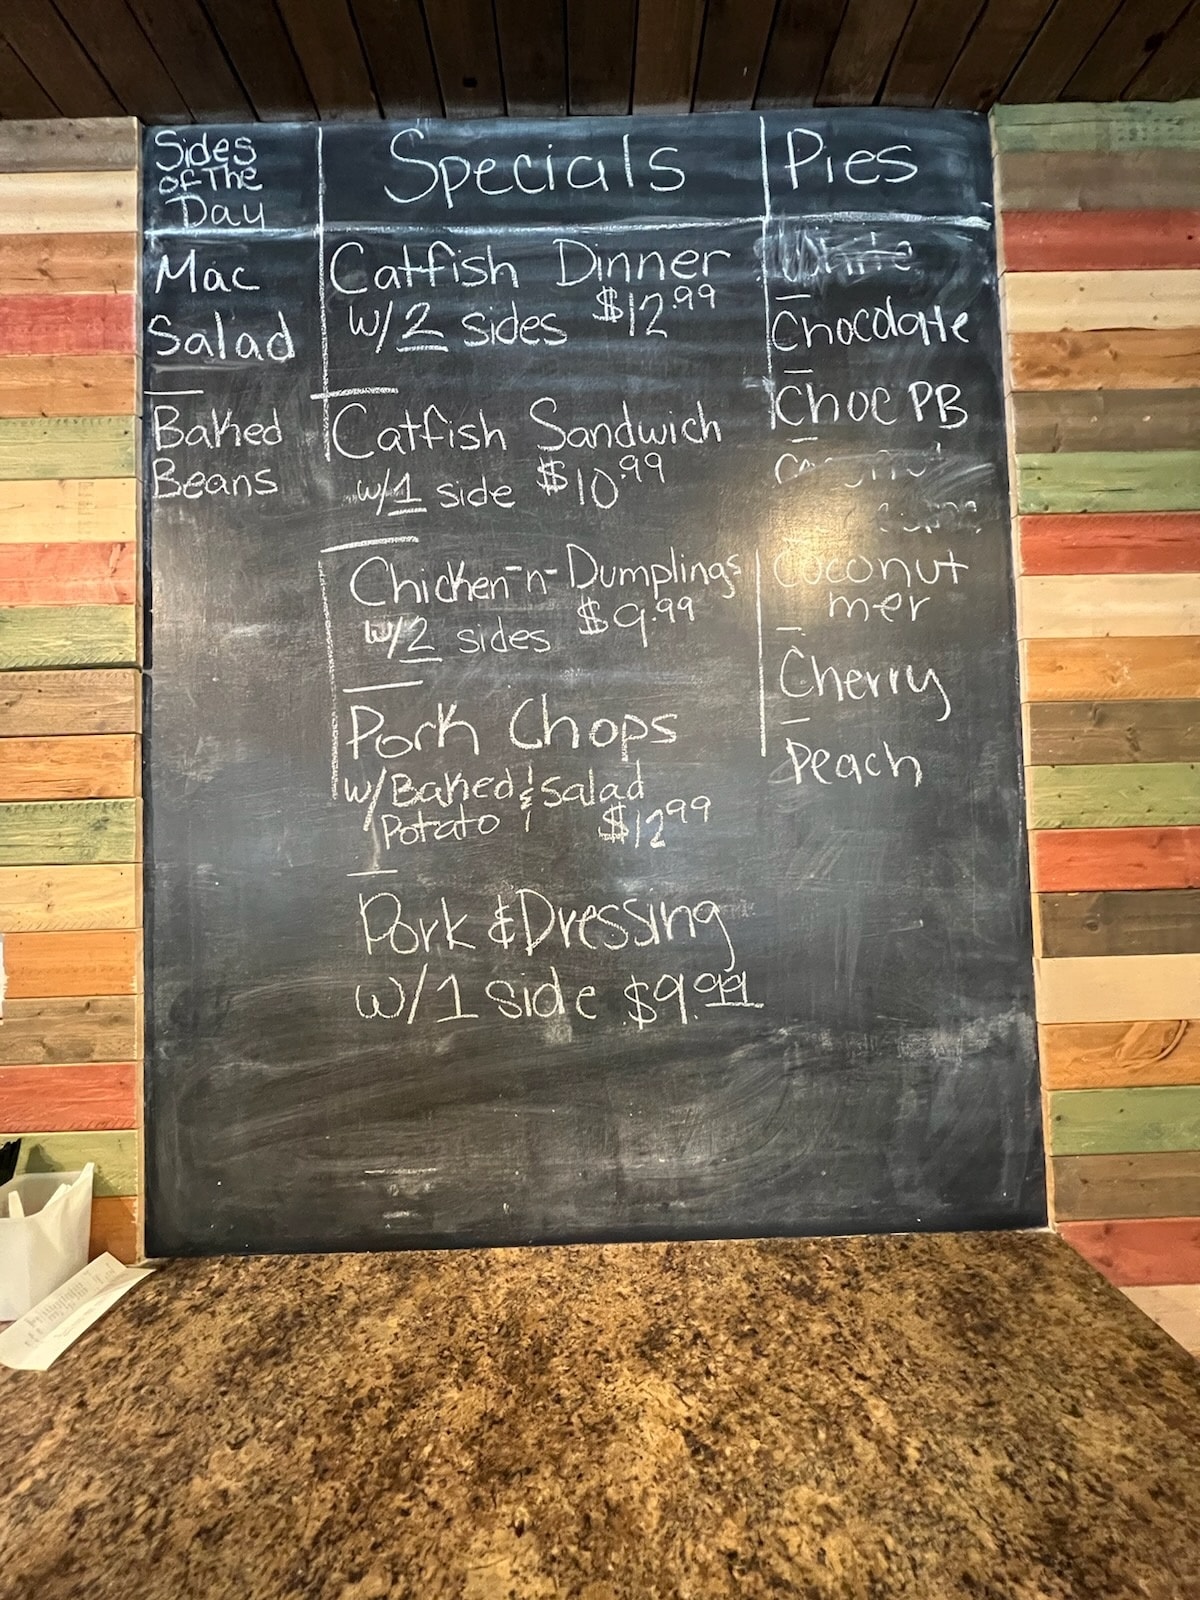 Sides
of The
Day
Mac
Salad
Baked
Beans
Specials
Catfish Dinner
w/2 sides $12.99
Catfish Sandwich
w/1 side $10.99
Chicken-n-Dumplings
w/2 sides $9.99
Pork Chops
w/Baked & Salad
Potato $12.99
Pork & Dressing
w/1 side $9.99
Pies
Chocolate
Choc PB
Coconut
mer
Cherry
Peach